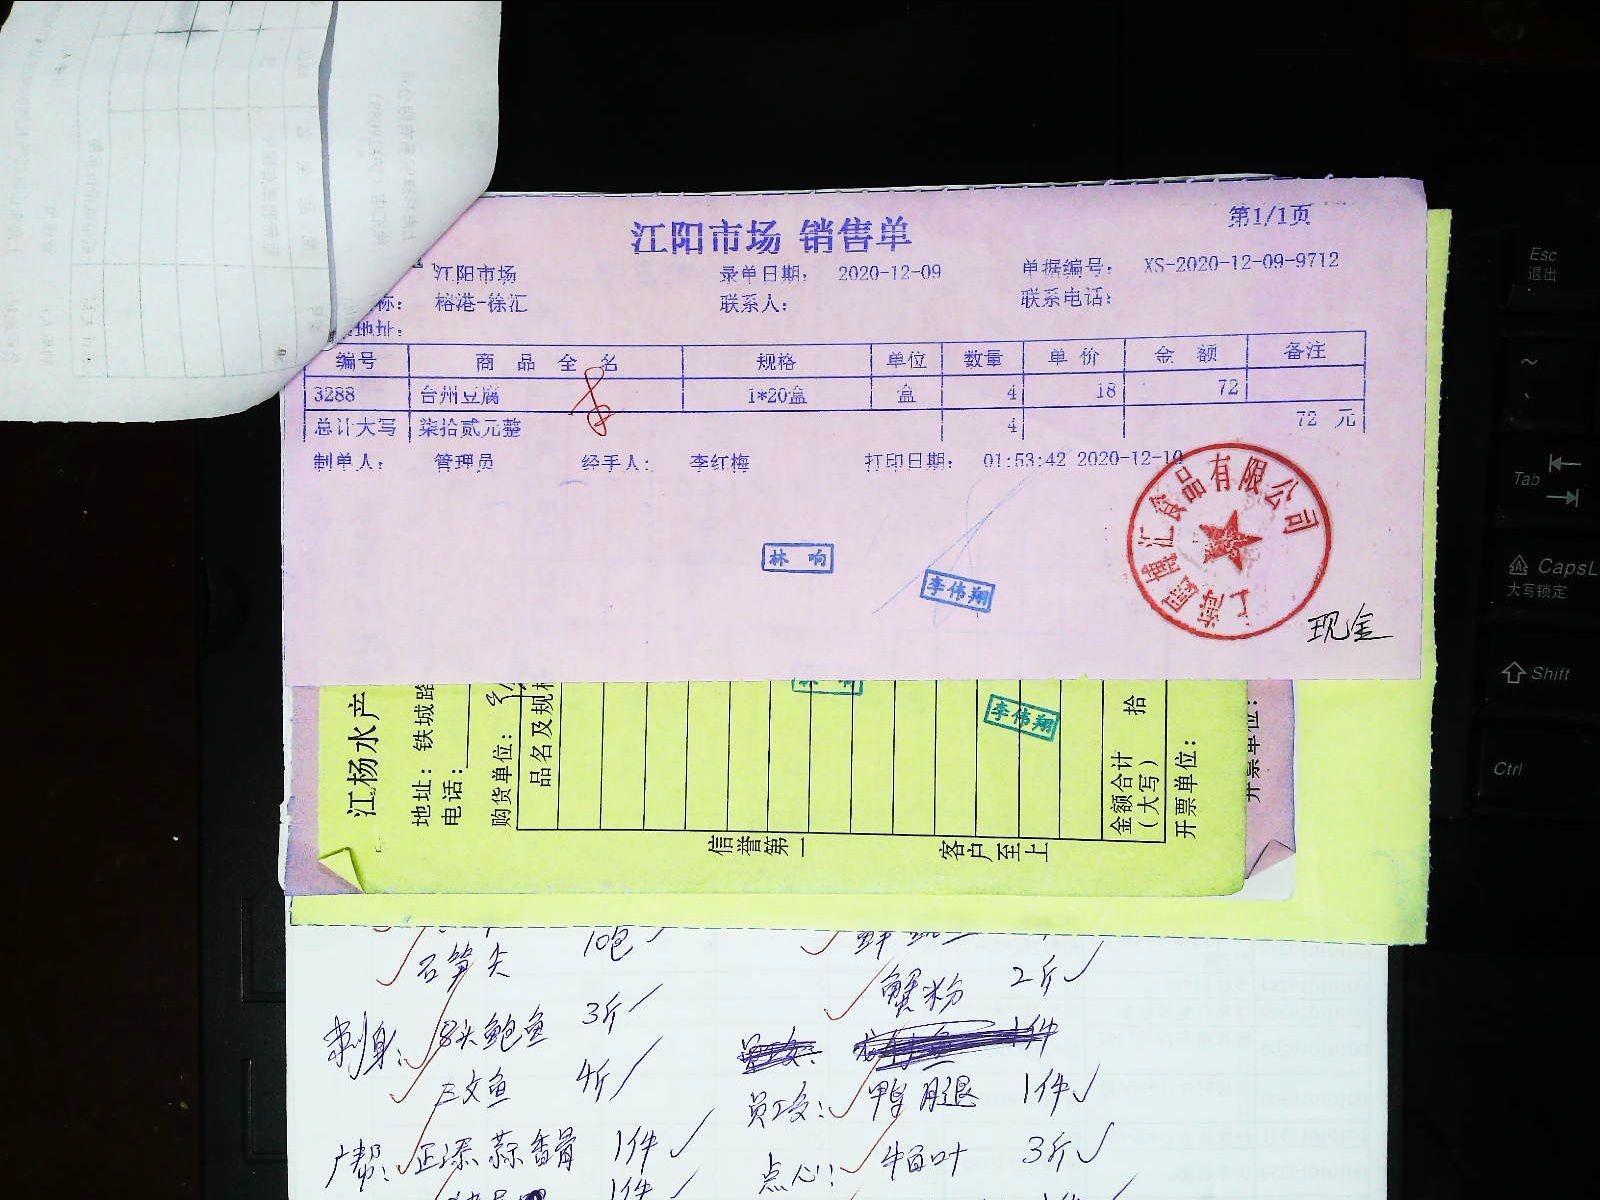 江阳市场 销售单
第1/1页
江阳市场 录单日期： 2020-12-09 单据编号： XS-2020-12-09-9712
称： 榕港-徐汇 联系人： 联系电话：
地址：
编号 商 品 全 名 规格 单位 数量 单 价 金 额 备注
3288 台州豆腐 1*20盒 盒 4 18 72
总计大写 柒拾贰元整 4 72 元
制单人： 管理员 经手人： 李红梅 打印日期： 01:53:42 2020-12-10
林 响
李伟翔
食品有限公司
现金
江杨水产
地址：铁城路
电话：
购货单位：
品名及规格
李伟翔
金额合计
（大写）
拾
开票单位：
开票单位：
信誉第一 客户至上
石笋尖 10包
蟹粉 2斤
刺身： 8头鲍鱼 3斤
1件
三文鱼 4斤
员工餐： 鸭腿 1件
广帮： 正深蒜香骨 1件
点心： 3斤
1件
Esc
退出
~
Tab
CapsL
大写锁定
Shift
Ctrl